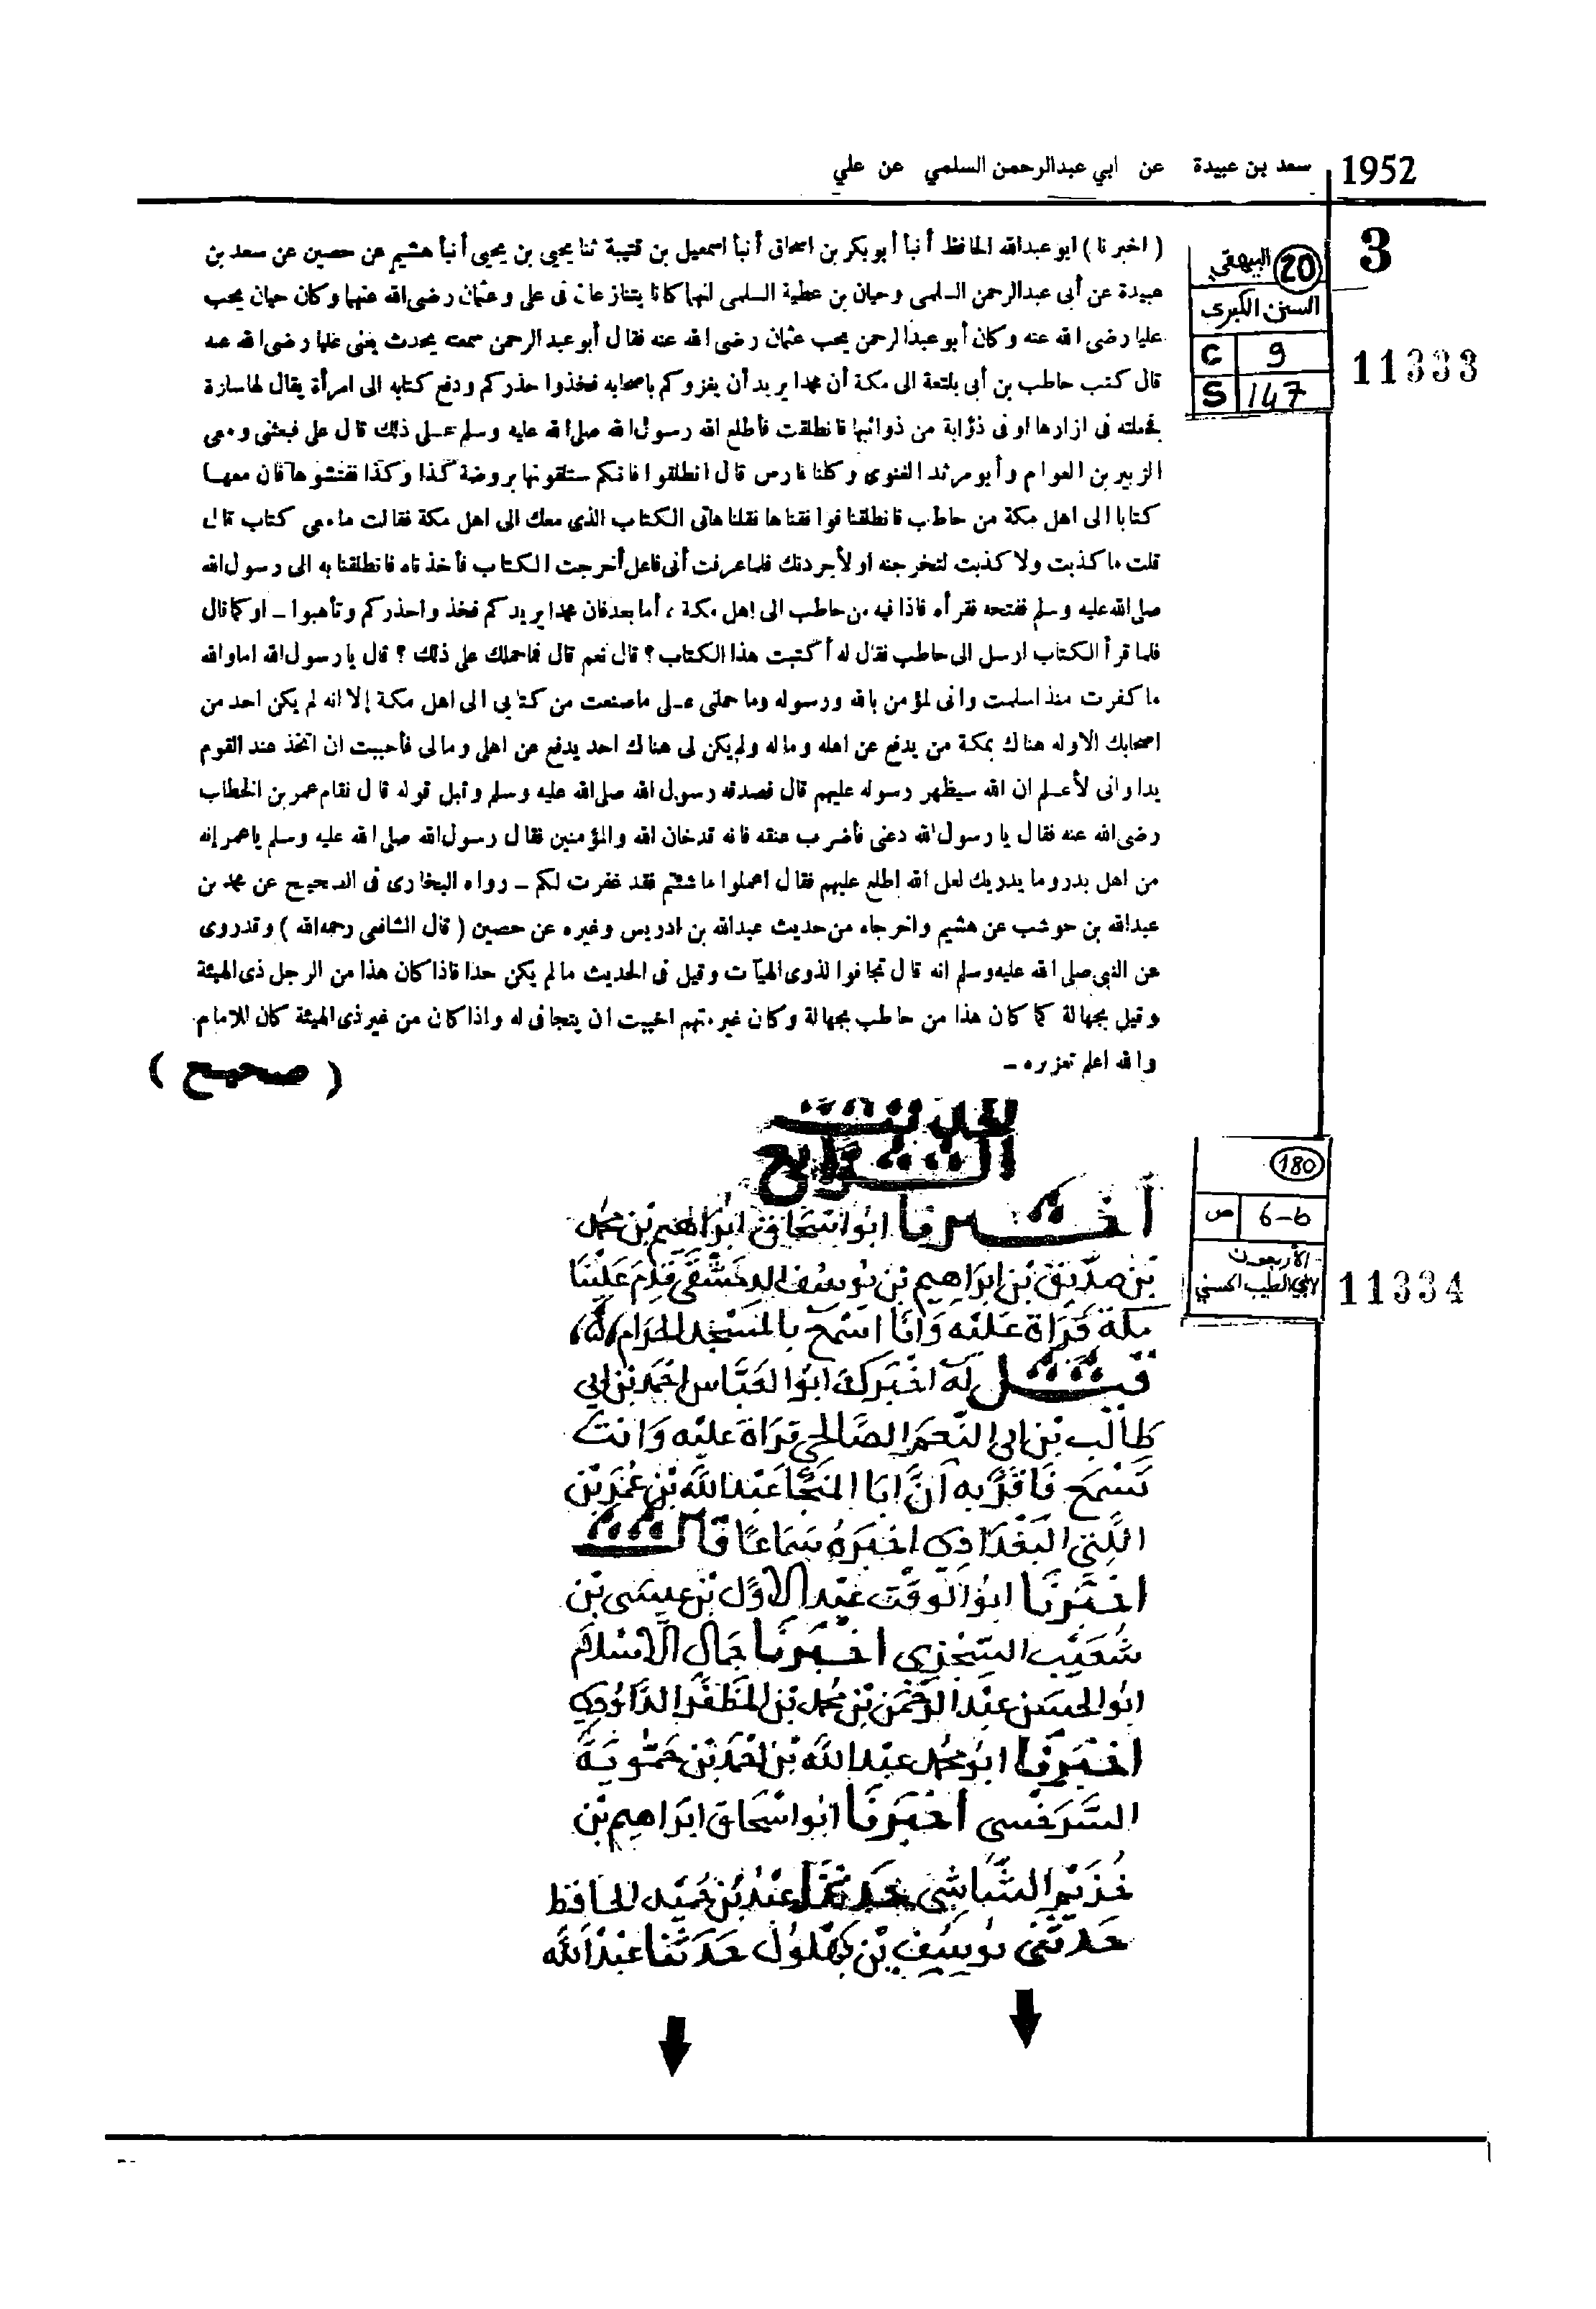 1952 سعد بن عبيدة عن ابي عبدالرحمن السلمي عن علي
3
20 البيهقي
السنن الكبرى
C 9
S 147
11333
( اخبرنا ) ابو عبدالله الحافظ أنبأ أبو بكر بن اسحاق أنبأ اسمعيل بن قتيبة ثنا يحيى بن يحيى أنبأ هشيم عن حصين عن سعد بن
عبيدة عن أبى عبدالرحمن السلمى وحيان بن عطية السلمى انهما كانا يتنازعان فى على وعثمان رضى الله عنهما وكان حيان يحب
عليا رضى الله عنه وكان أبو عبدالرحمن يحب عثمان رضى الله عنه فقال أبو عبد الرحمن سمعته يحدث يعنى عليا رضى الله عنه
قال كتب حاطب بن أبى بلتعة الى مكة أن محمدا يريد أن يغزوكم باصحابه فخذوا حذركم ودفع كتابه الى امرأة يقال لها سارة
فجعلته فى ازارها او فى ذؤابة من ذوائبها فانطلقت فأطلع الله رسول الله صلى الله عليه وسلم على ذلك قال على فبعثنى ومعى
الزبير بن العوام وأبو مرثد الغنوى وكلنا فارس قال انطلقوا فانكم ستلقونها بروضة كذا وكذا ففتشوها فان معها
كتابا الى اهل مكة من حاطب فانطلقنا فوافقناها فقلنا هاتى الكتاب الذى معك الى اهل مكة فقالت ما معى كتاب قال
قلت ما كذبت ولا كذبت لتخرجنه او لأجردنك فلما عرفت أنى فاعل أخرجت الكتاب فأخذناه فانطلقنا به الى رسول الله
صلى الله عليه وسلم ففتحه فقرأه فاذا فيه من حاطب الى اهل مكة ، أما بعد فان محمدا يريدكم فخذوا حذركم وتأهبوا ـ او كما قال
فلما قرأ الكتاب ارسل الى حاطب فقال له أكتبت هذا الكتاب ؟ قال نعم قال فما حملك على ذلك ؟ قال يا رسول الله اما والله
ما كفرت منذ اسلمت وانى لمؤمن بالله ورسوله وما حملنى على ما صنعت من كتابى الى اهل مكة إلا انه لم يكن احد من
اصحابك الا وله هناك بمكة من يدفع عن اهله وماله ولم يكن لى هناك احد يدفع عن اهلى ومالى فأحببت ان اتخذ عند القوم
يدا وانى لأعلم ان الله سيظهر رسوله عليهم قال فصدقه رسول الله صلى الله عليه وسلم وقبل قوله قال فقام عمر بن الخطاب
رضى الله عنه فقال يا رسول الله دعنى فأضرب عنقه فانه قد خان الله والمؤمنين فقال رسول الله صلى الله عليه وسلم يا عمر إنه
من اهل بدر وما يدريك لعل الله اطلع عليهم فقال اعملوا ما شئتم فقد غفرت لكم ـ رواه البخارى فى الصحيح عن محمد بن
عبدالله بن حوشب عن هشيم واخرجاه من حديث عبدالله بن ادريس وغيره عن حصين ( قال الشافعى رحمه الله ) وقد روى
عن النبى صلى الله عليه وسلم انه قال تجافوا لذوى الهيآت وقيل فى الحديث ما لم يكن حدا فاذا كان هذا من الرجل ذى الهيئة
وقيل بجهالة كما كان هذا من حاطب بجهالة وكان غير متهم احببت ان يتجافى له واذا كان من غير ذى الهيئة كان للامام
والله اعلم تعزيره ـ
( صحيح )
180
ص 6-b
الأربعون
لابي الطيب الحسني
11334
الحديث
الرابع
أخبرنا ابو اسحاق ابراهيم بن محمد
بن صديق بن ابراهيم بن يوسف الدمشقي قدم علينا
مكة قراة عليه وانا اسمع بالمسجد الحرام
قيل له اخبرك ابو العباس احمد بن ابي
طالب بن ابي النعم الصالحي قراة عليه وانت
تسمع فاقر به ان ابا المنجا عبد الله بن عمر بن
اللتي البغدادي اخبره سماعا قال
اخبرنا ابو الوقت عبد الاول بن عيسى بن
شعيب السجزي اخبرنا جمال الاسلام
ابو الحسن عبد الرحمن بن محمد بن المظفر الداودي
اخبرنا ابو محمد عبد الله بن احمد بن حمويه
السرخسي اخبرنا ابو اسحاق ابراهيم بن
خزيم الشاشي حدثنا عبد بن حميد الحافظ
حدثني يوسف بن بهلول حدثنا عبد الله